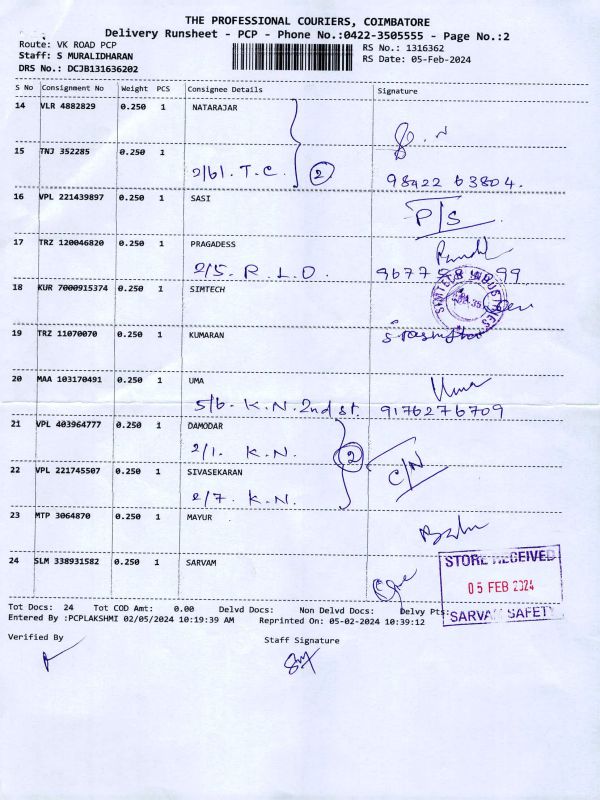 THE PROFESSIONAL COURIERS, COIMBATORE
Delivery Runsheet - PCP - Phone No.:0422-3505555 - Page No.:2
Route: VK ROAD PCP
RS No.: 1316362
Staff: S MURALIDHARAN
RS Date: 05-Feb-2024
DRS No.: DCJB131636202
S No Consignment No Weight PCS Consignee Details Signature
14 VLR 4882829 0.250 1 NATARAJAR
15 TNJ 352285 0.250 1
2/61. T.C. 2 98422 63804.
16 VPL 221439897 0.250 1 SASI
P/S
17 TRZ 120046820 0.250 1 PRAGADESS
2/5. R.L.O.
18 KUR 7000915374 0.250 1 SIMTECH
SIMTECH INDUSTRIES
19 TRZ 11070070 0.250 1 KUMARAN
20 MAA 103170491 0.250 1 UMA
Uma
5/6. K.N. 2nd st. 9176276709
21 VPL 403964777 0.250 1 DAMODAR
2/1. K.N. 2
C/N
22 VPL 221745507 0.250 1 SIVASEKARAN
2/7. K.N.
23 MTP 3064870 0.250 1 MAYUR
24 SLM 338931582 0.250 1 SARVAM
STORE RECEIVED
05 FEB 2024
SARVAM SAFETY
Tot Docs: 24 Tot COD Amt: 0.00 Delvd Docs: Non Delvd Docs: Delvy Pts:
Entered By :PCPLAKSHMI 02/05/2024 10:19:39 AM Reprinted On: 05-02-2024 10:39:12
Verified By Staff Signature